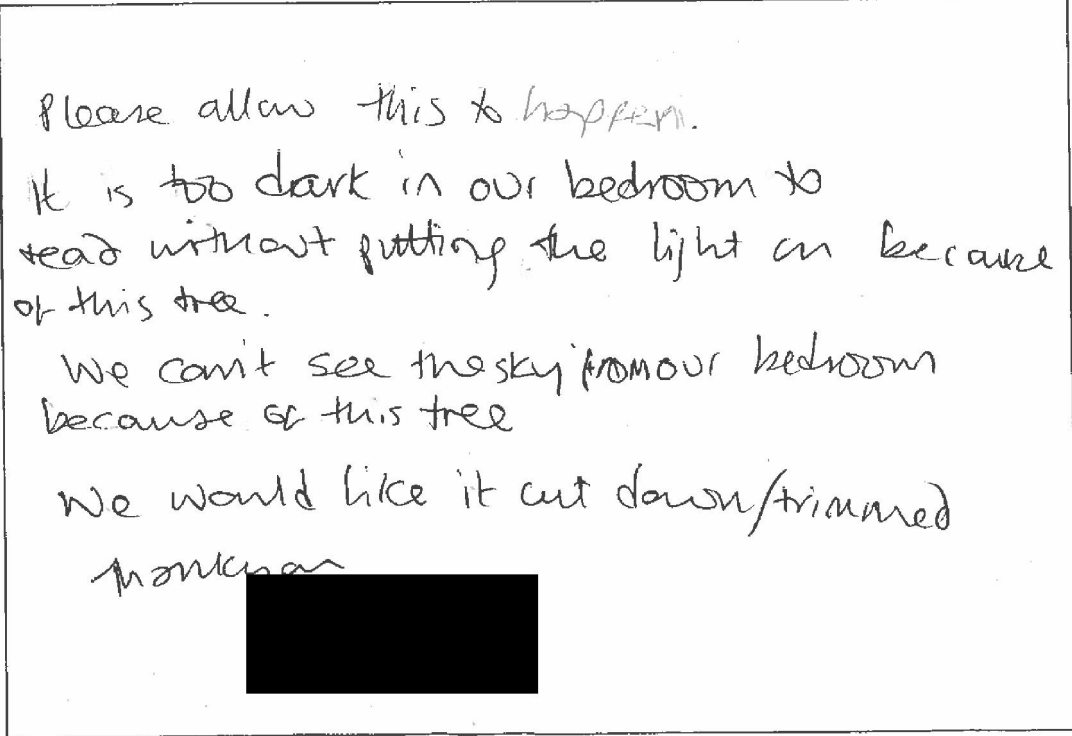 Please allow this to happen.
It is too dark in our bedroom to
read without putting the light on because
of this tree.
We can't see the sky from our bedroom
because of this tree
We would like it cut down/trimmed
Thankyou